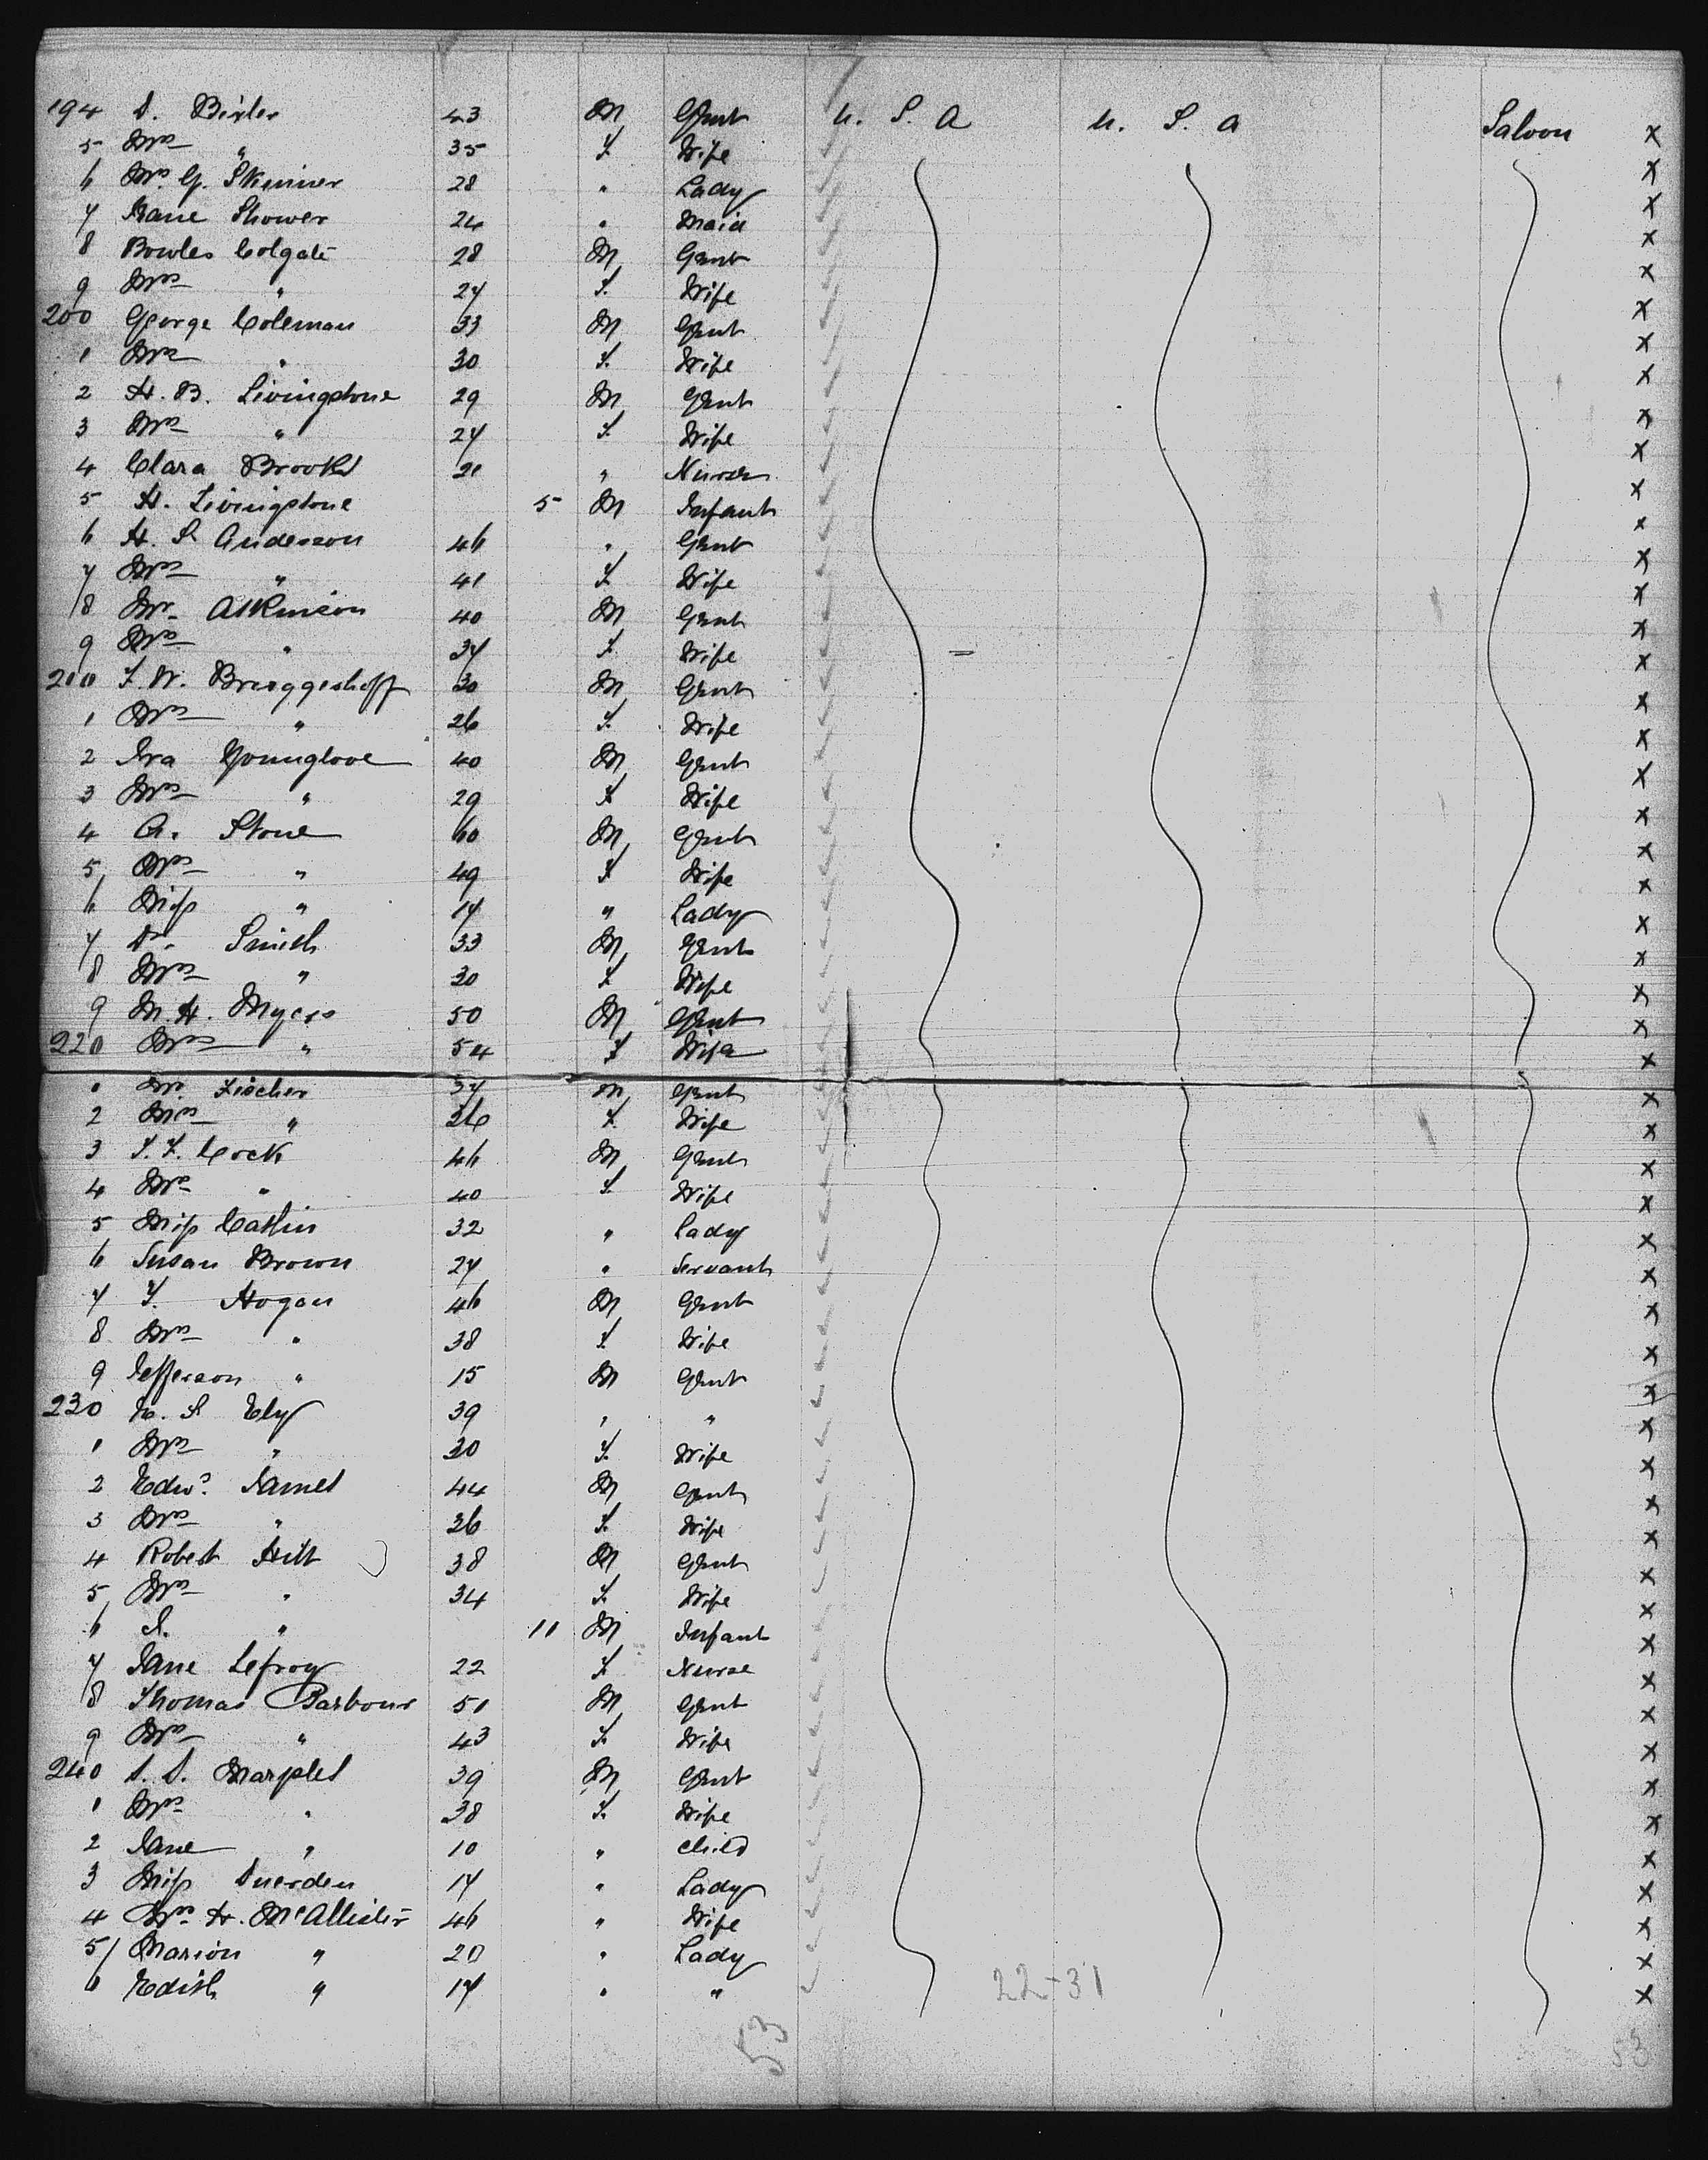 194 D. Bixler 43 M Gent U. S. A U. S. A Saloon x
5 Mrs " 35 F. Wife x
6 Mrs. G. Skinner 28 " Lady x
7 Jane Shower 24 " Maid x
8 Bowles Colgate 28 M Gent x
9 Mrs " 27 F. Wife x
200 George Coleman 33 M Gent x
1 Mrs " 30 F. Wife x
2 H. B. Livingstone 29 M Gent x
3 Mrs " 27 F. Wife x
4 Clara Brooks 21 " Nurse x
5 H. Livingstone 5 M Infant x
6 H. S Anderson 46 " Gent x
7 Mrs " 41 F. Wife x
8 Mr. Atkinson 40 M Gent x
9 Mrs " 37 F. Wife x
210 F. W. Brueggeshoff 30 M Gent x
1 Mrs " 26 F. Wife x
2 Ira Younglove 40 M Gent x
3 Mrs " 29 F Wife x
4 A. Stone 60 M Gent x
5 Mrs " 49 F Wife x
6 Miss " 17 " Lady x
7 Dr. Smith 33 M Gent x
8 Mrs " 30 F Wife x
9 M. H. Myers 50 M Gent x
220 Mrs " 54 F Wife x
1 Mr. Fischer 37 M Gent x
2 Mrs " 26 F. Wife x
3 T. F. Cock 46 M Gent x
4 Mrs " 40 F. Wife x
5 Miss Catlin 32 " Lady x
6 Susan Brown 27 " Servant x
7 T. Hogan 46 M Gent x
8 Mrs " 38 F Wife x
9 Jefferson " 15 M Gent x
230 E. S Ely 39 " " x
1 Mrs " 30 F. Wife x
2 Edwd. James 44 M Gent x
3 Mrs " 36 F. Wife x
4 Robert Hitt 38 M Gent x
5 Mrs " 34 F. Wife x
6 S. " 11 M Infant x
7 Jane Lefroy 22 F Nurse x
8 Thomas Barbour 51 M Gent x
9 Mrs " 43 F. Wife x
240 D. D. Marples 39 M Gent x
1 Mrs " 38 F. Wife x
2 Jane " 10 " Child x
3 Miss Duerden 17 " Lady x
4 Mrs. H. McAllister 46 " Wife x
5 Marion " 20 " Lady x
6 Edith " 17 " " x
22-31
53
53